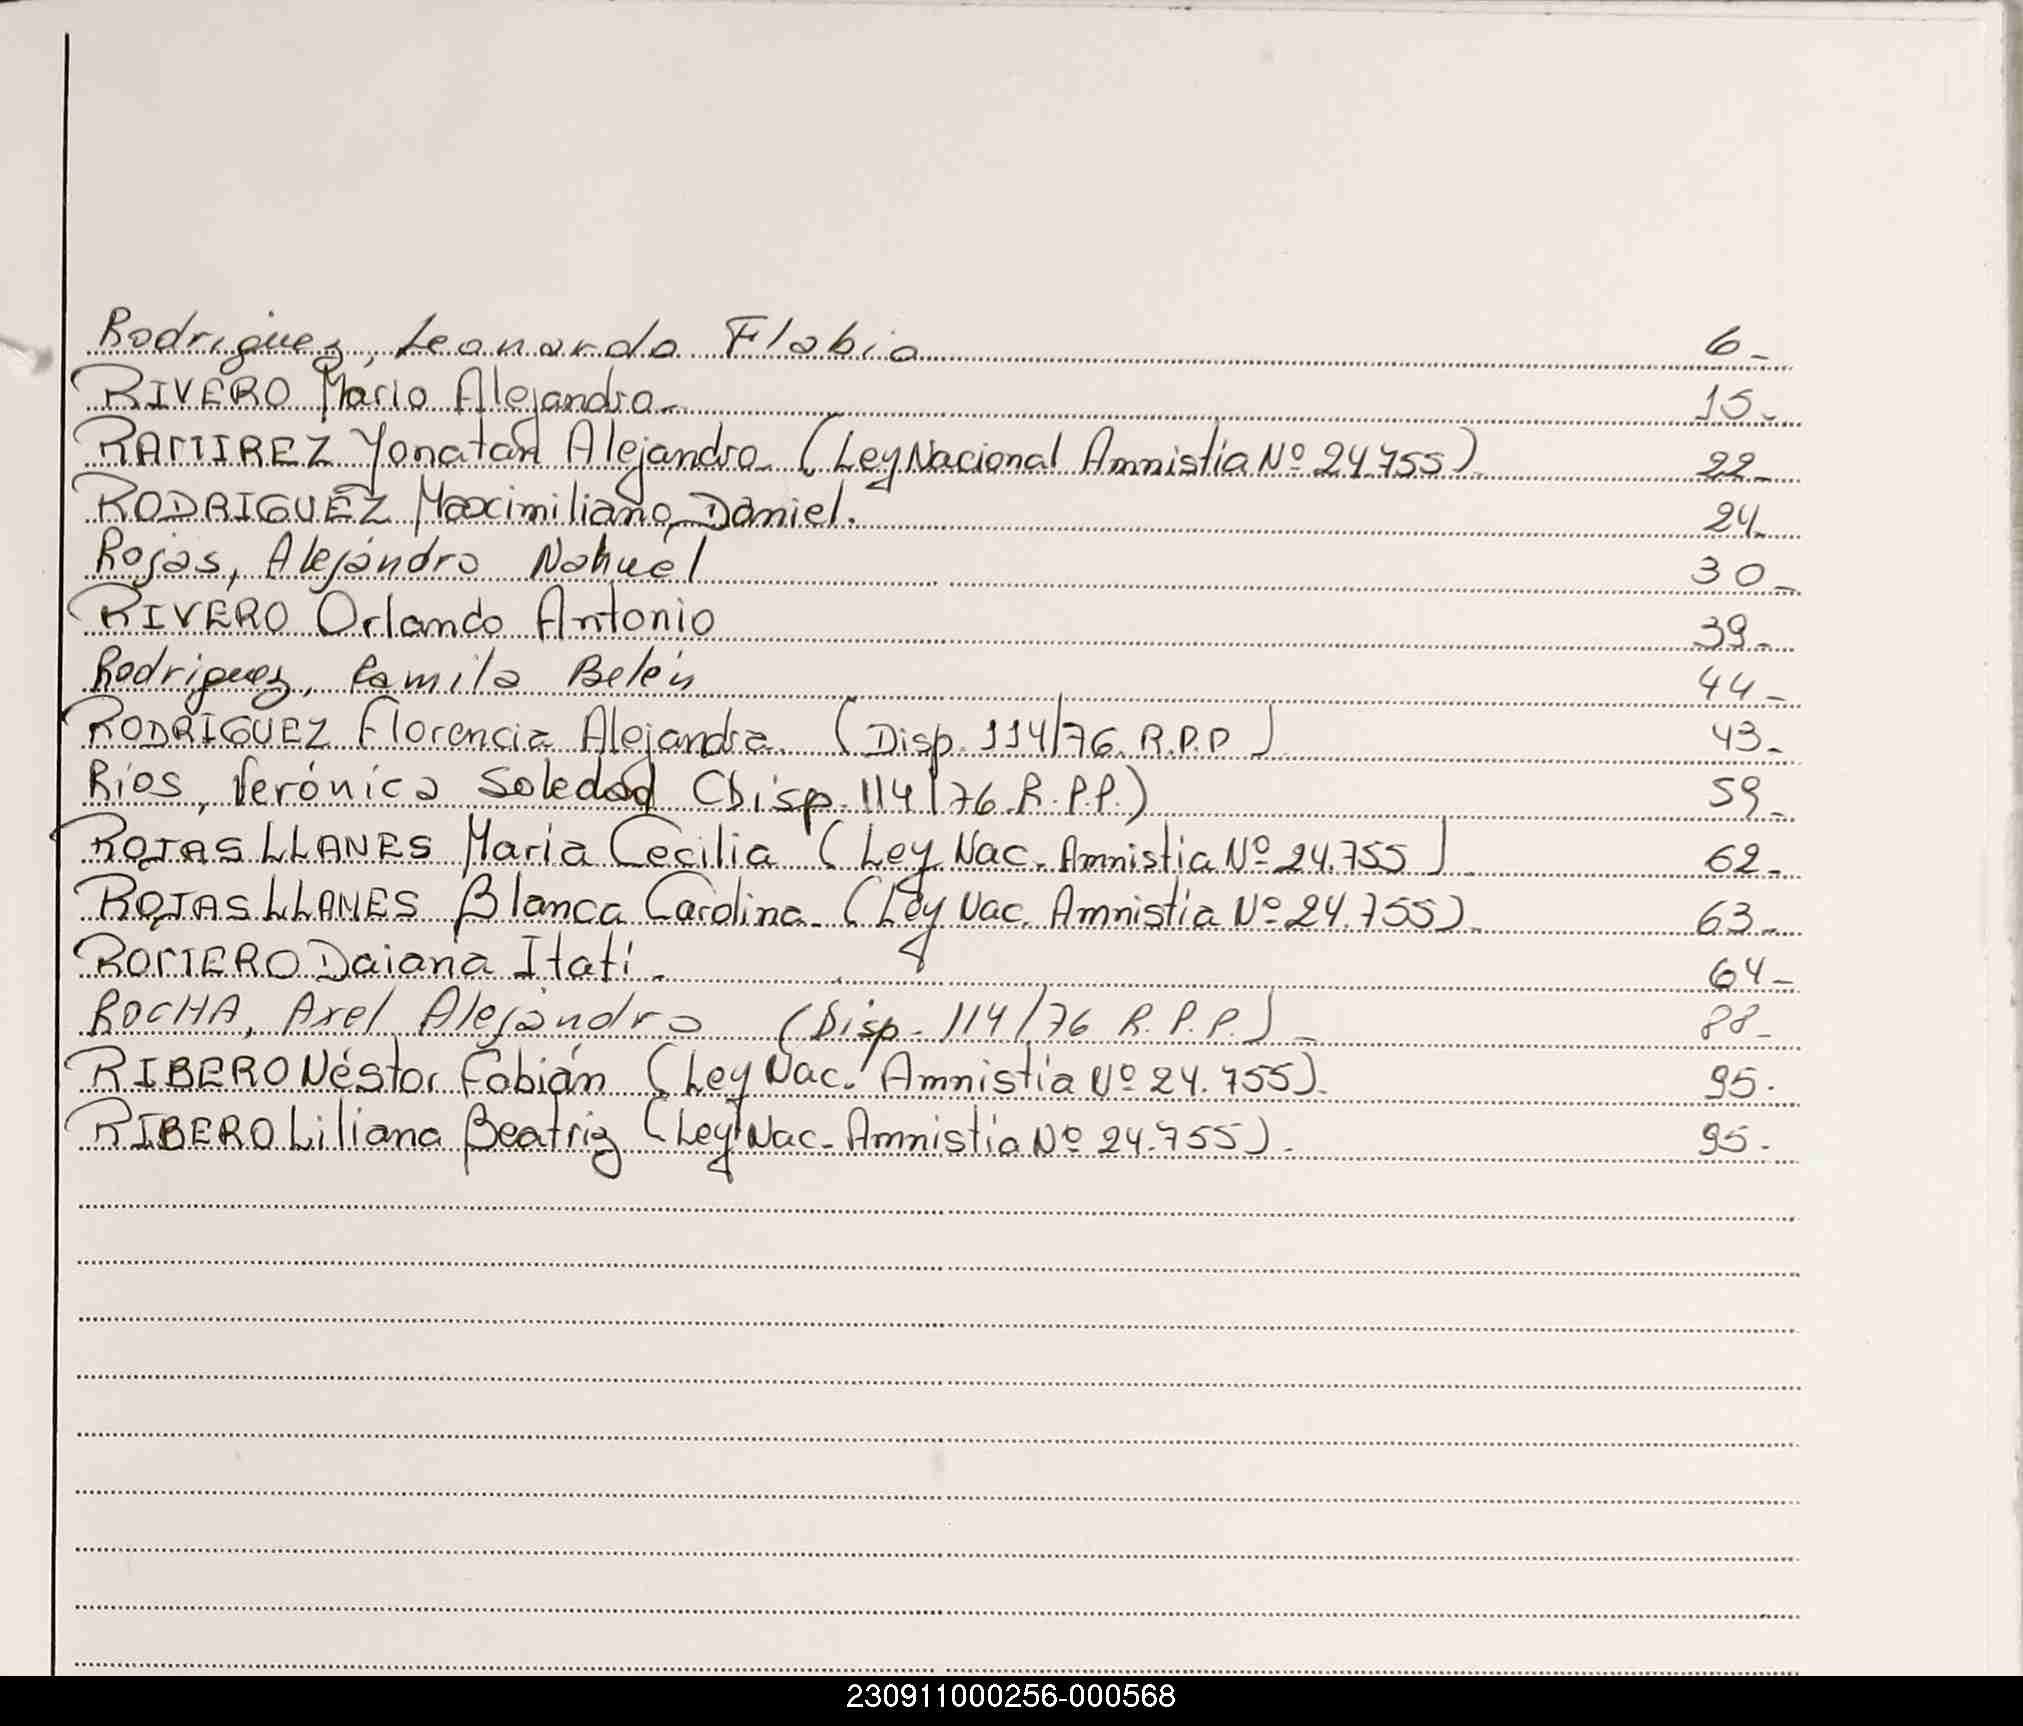 Rodriguez, Leonardo Flabio 6-
RIVERO Mario Alejandro- 15-
RAMIREZ Yonatan Alejandro (Ley Nacional Amnistia Nº 24.755) 22-
RODRIGUEZ Maximiliano Daniel. 24-
Rojas, Alejandro Nahuel 30-
RIVERO Orlando Antonio 39-
Rodriguez, Camila Belén 44-
RODRIGUEZ Florencia Alejandra (Disp. 114/76 R.P.P) 43-
Ríos, Verónica Soledad (Disp. 114/76 R.P.P.) 59-
ROJAS LLANES Maria Cecilia (Ley Nac. Amnistia Nº 24.755) 62-
ROJAS LLANES Blanca Carolina- (Ley Nac. Amnistia Nº 24.755) 63-
ROMERO Daiana Itatí- 64-
ROCHA, Axel Alejandro (Disp. 114/76 R.P.P.)- 88-
RIBERO Néstor Fabián (Ley Nac. Amnistía Nº 24.755). 95-
RIBERO Liliana Beatriz (Ley Nac. Amnistia Nº 24.755)- 95-
230911000256-000568